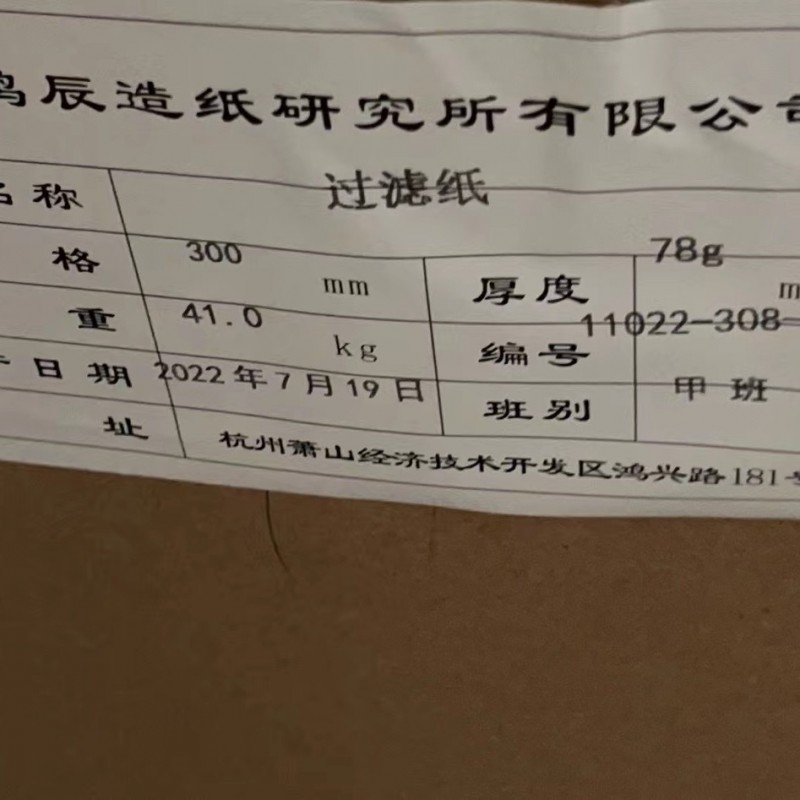 辰造纸研究所有限公司
名称 过滤纸
格 300 mm 厚度 78g m
重 41.0 kg 编号 11022-308-
日期 2022年7月19日 班别 甲班
址 杭州萧山经济技术开发区鸿兴路181号